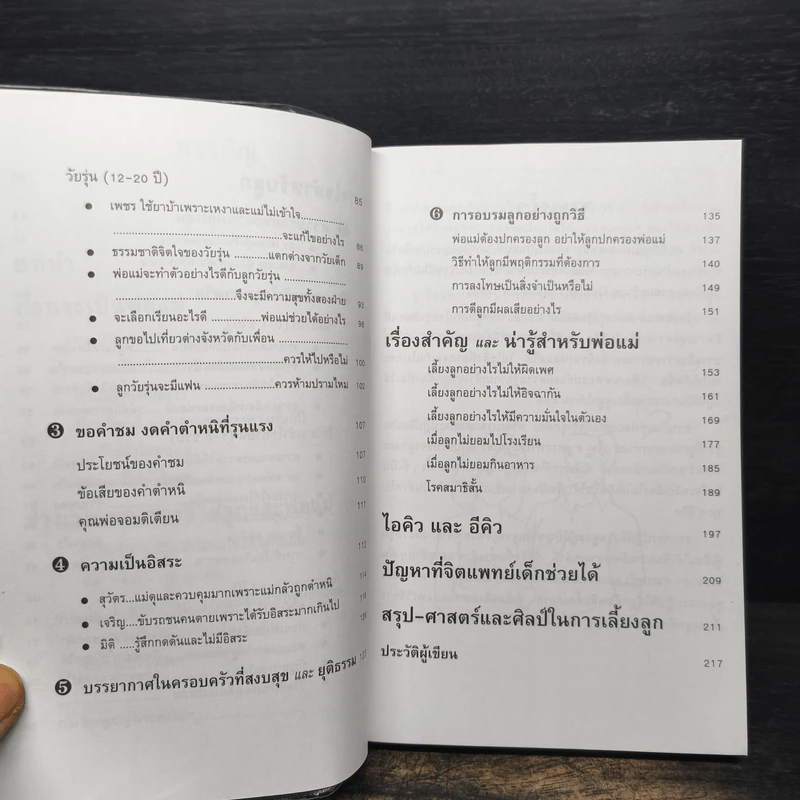 วัยรุ่น (12-20 ปี)
● เพชร ใช้ยาบ้าเพราะเหงาและแม่ไม่เข้าใจ.............. 85
...............................................จะแก้ไขอย่างไร 86
● ธรรมชาติจิตใจของวัยรุ่น ...........แตกต่างจากวัยเด็ก 89
● พ่อแม่จะทำตัวอย่างไรดีกับลูกวัยรุ่น
..................................จึงจะมีความสุขทั้งสองฝ่าย 93
● จะเลือกเรียนอะไรดี ................พ่อแม่ช่วยได้อย่างไร 98
● ลูกขอไปเที่ยวต่างจังหวัดกับเพื่อน ....................
................................................ควรให้ไปหรือไม่ 100
● ลูกวัยรุ่นจะมีแฟน ......................ควรห้ามปรามไหม 102
❸ ขอคำชม งดคำตำหนิที่รุนแรง 107
ประโยชน์ของคำชม 107
ข้อเสียของคำตำหนิ 110
คุณพ่อจอมติเตียน 111
❹ ความเป็นอิสระ 112
● สุวัตร...แม่ดุและควบคุมมากเพราะแม่กลัวถูกตำหนิ 114
● เจริญ....ขับรถชนคนตายเพราะได้รับอิสระมากเกินไป
● มิติ .....รู้สึกกดดันและไม่มีอิสระ
❺ บรรยากาศในครอบครัวที่สงบสุข และ ยุติธรรม
❻ การอบรมลูกอย่างถูกวิธี 135
พ่อแม่ต้องปกครองลูก อย่าให้ลูกปกครองพ่อแม่ 137
วิธีทำให้ลูกมีพฤติกรรมที่ต้องการ 140
การลงโทษเป็นสิ่งจำเป็นหรือไม่ 149
การตีลูกมีผลเสียอย่างไร 151
เรื่องสำคัญ และ น่ารู้สำหรับพ่อแม่
เลี้ยงลูกอย่างไรไม่ให้ผิดเพศ 153
เลี้ยงลูกอย่างไรไม่ให้อิจฉากัน 161
เลี้ยงลูกอย่างไรให้มีความมั่นใจในตัวเอง 169
เมื่อลูกไม่ยอมไปโรงเรียน 177
เมื่อลูกไม่ยอมกินอาหาร 185
โรคสมาธิสั้น 189
ไอคิว และ อีคิว 197
ปัญหาที่จิตแพทย์เด็กช่วยได้ 209
สรุป-ศาสตร์และศิลป์ในการเลี้ยงลูก 211
ประวัติผู้เขียน 217